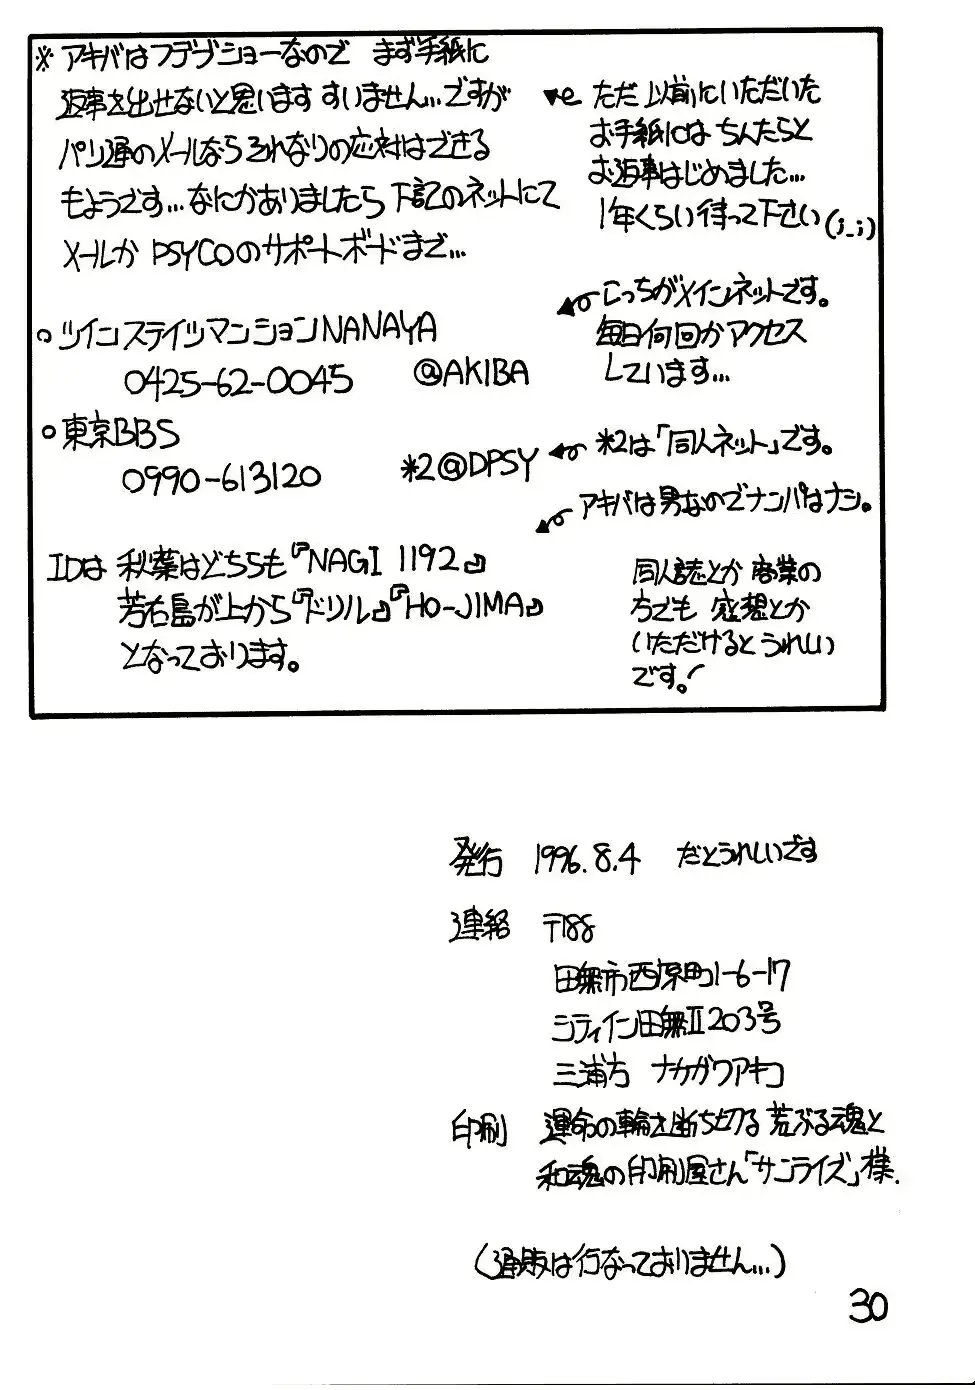 ※アキバはフデブショーなので まず手紙に
返事を出せないと思います すいません…ですが
パソ通のメールなら それなりの応対はできる
もようです…なにかありましたら 下記のネットにて
メールか PSYCOのサポートボードまで…
ただ 以前にいただいた
お手紙には ちんたらと
お返事はじめました…
1年くらい待って下さい(;_;)
○ツインステイツマンションNANAYA
0425-62-0045 @AKIBA
こっちがメインネットです。
毎日何回かアクセス
しています…
○東京BBS
0990-613120 *2@DPSY
*2は「同人ネット」です。
アキバは男なのでナンパはナシ。
IDは 秋葉はどちらも『NAGI 1192』
若右島が上から『ドリル』『HO-JIMA』
となっております。
同人誌とか 商業の
方でも 感想とか
いただけるとうれしい
です。!
発行 1996.8.4 だとうれしいです
連絡 〒188
田無市西原町1-6-17
シティイン田無Ⅱ203号
三浦方 ナカガワアキコ
印刷 運命の輪を断ち切る 荒ぶる魂と
和魂の印刷屋さん「サンライズ」様.
(通販は行なっておりません…)
30